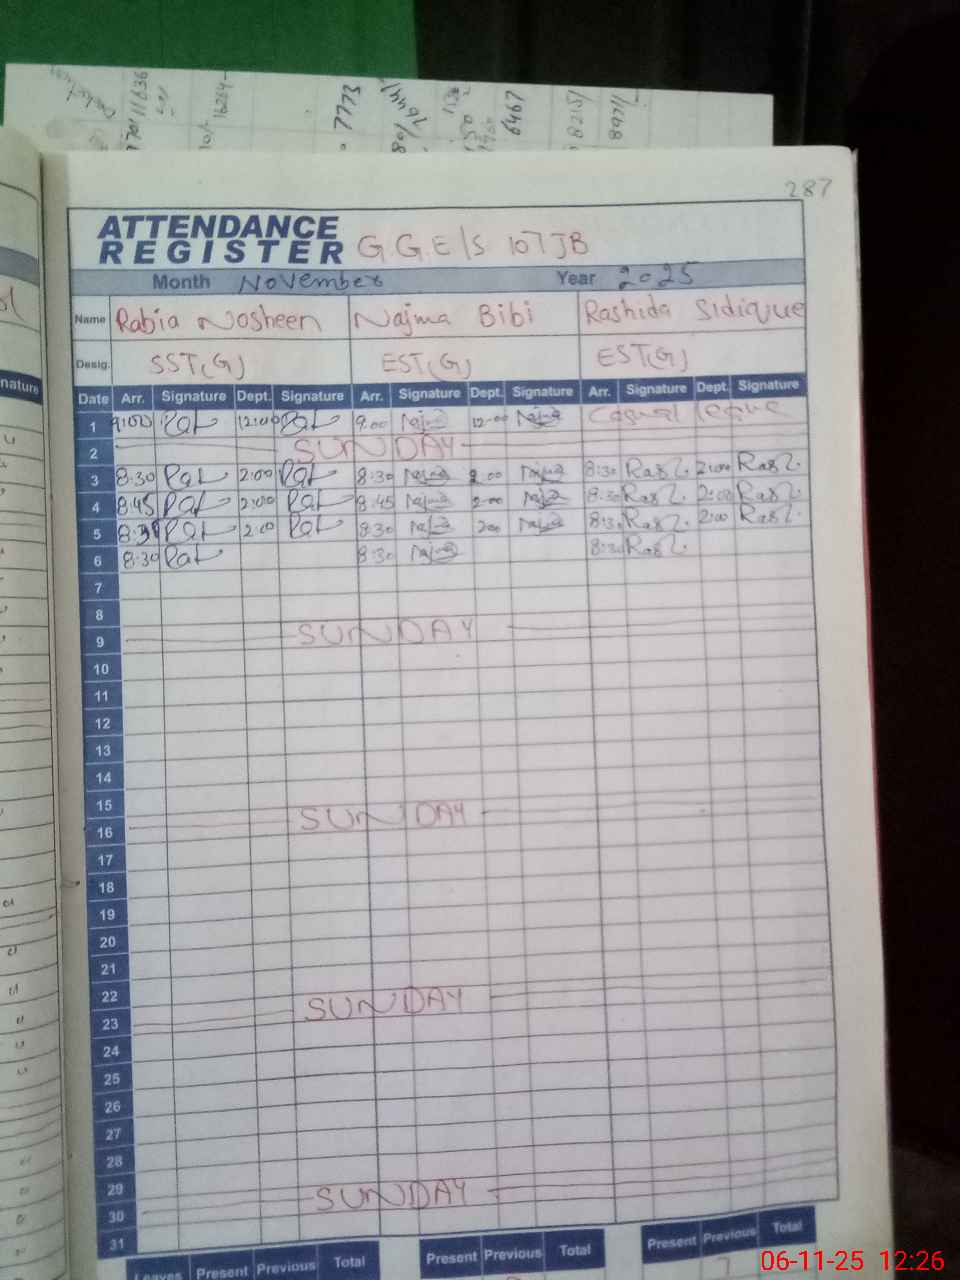 7773
6467
8215/
8971/
287
ATTENDANCE
REGISTER G.G.E/S 107JB
Month November Year 2025
Name Rabia Nosheen Najma Bibi Rashida Sidique
Desig. SST(G) EST(G) EST(G)
nature
Date Arr. Signature Dept. Signature Arr. Signature Dept. Signature Arr. Signature Dept. Signature
1 9:00 12:00 9:00 Najma 12:00 Najma Casual leave
2 SUNDAY
3 8:30 2:00 8:30 Najma 2:00 Najma 8:30 2:00
4 8:45 2:00 8:45 Najma 2:00 Najma 8:30 2:00
5 8:30 2:00 8:30 Najma 2:00 Najma 8:30 2:00
6 8:30 8:30 Najma 8:30
7
8
9 SUNDAY
10
11
12
13
14
15
16 SUNDAY
17
18
19
20
21
22
23 SUNDAY
24
25
26
27
28
29
30 SUNDAY
31
Leaves Present Previous Total Present Previous Total Present Previous Total
06-11-25 12:26